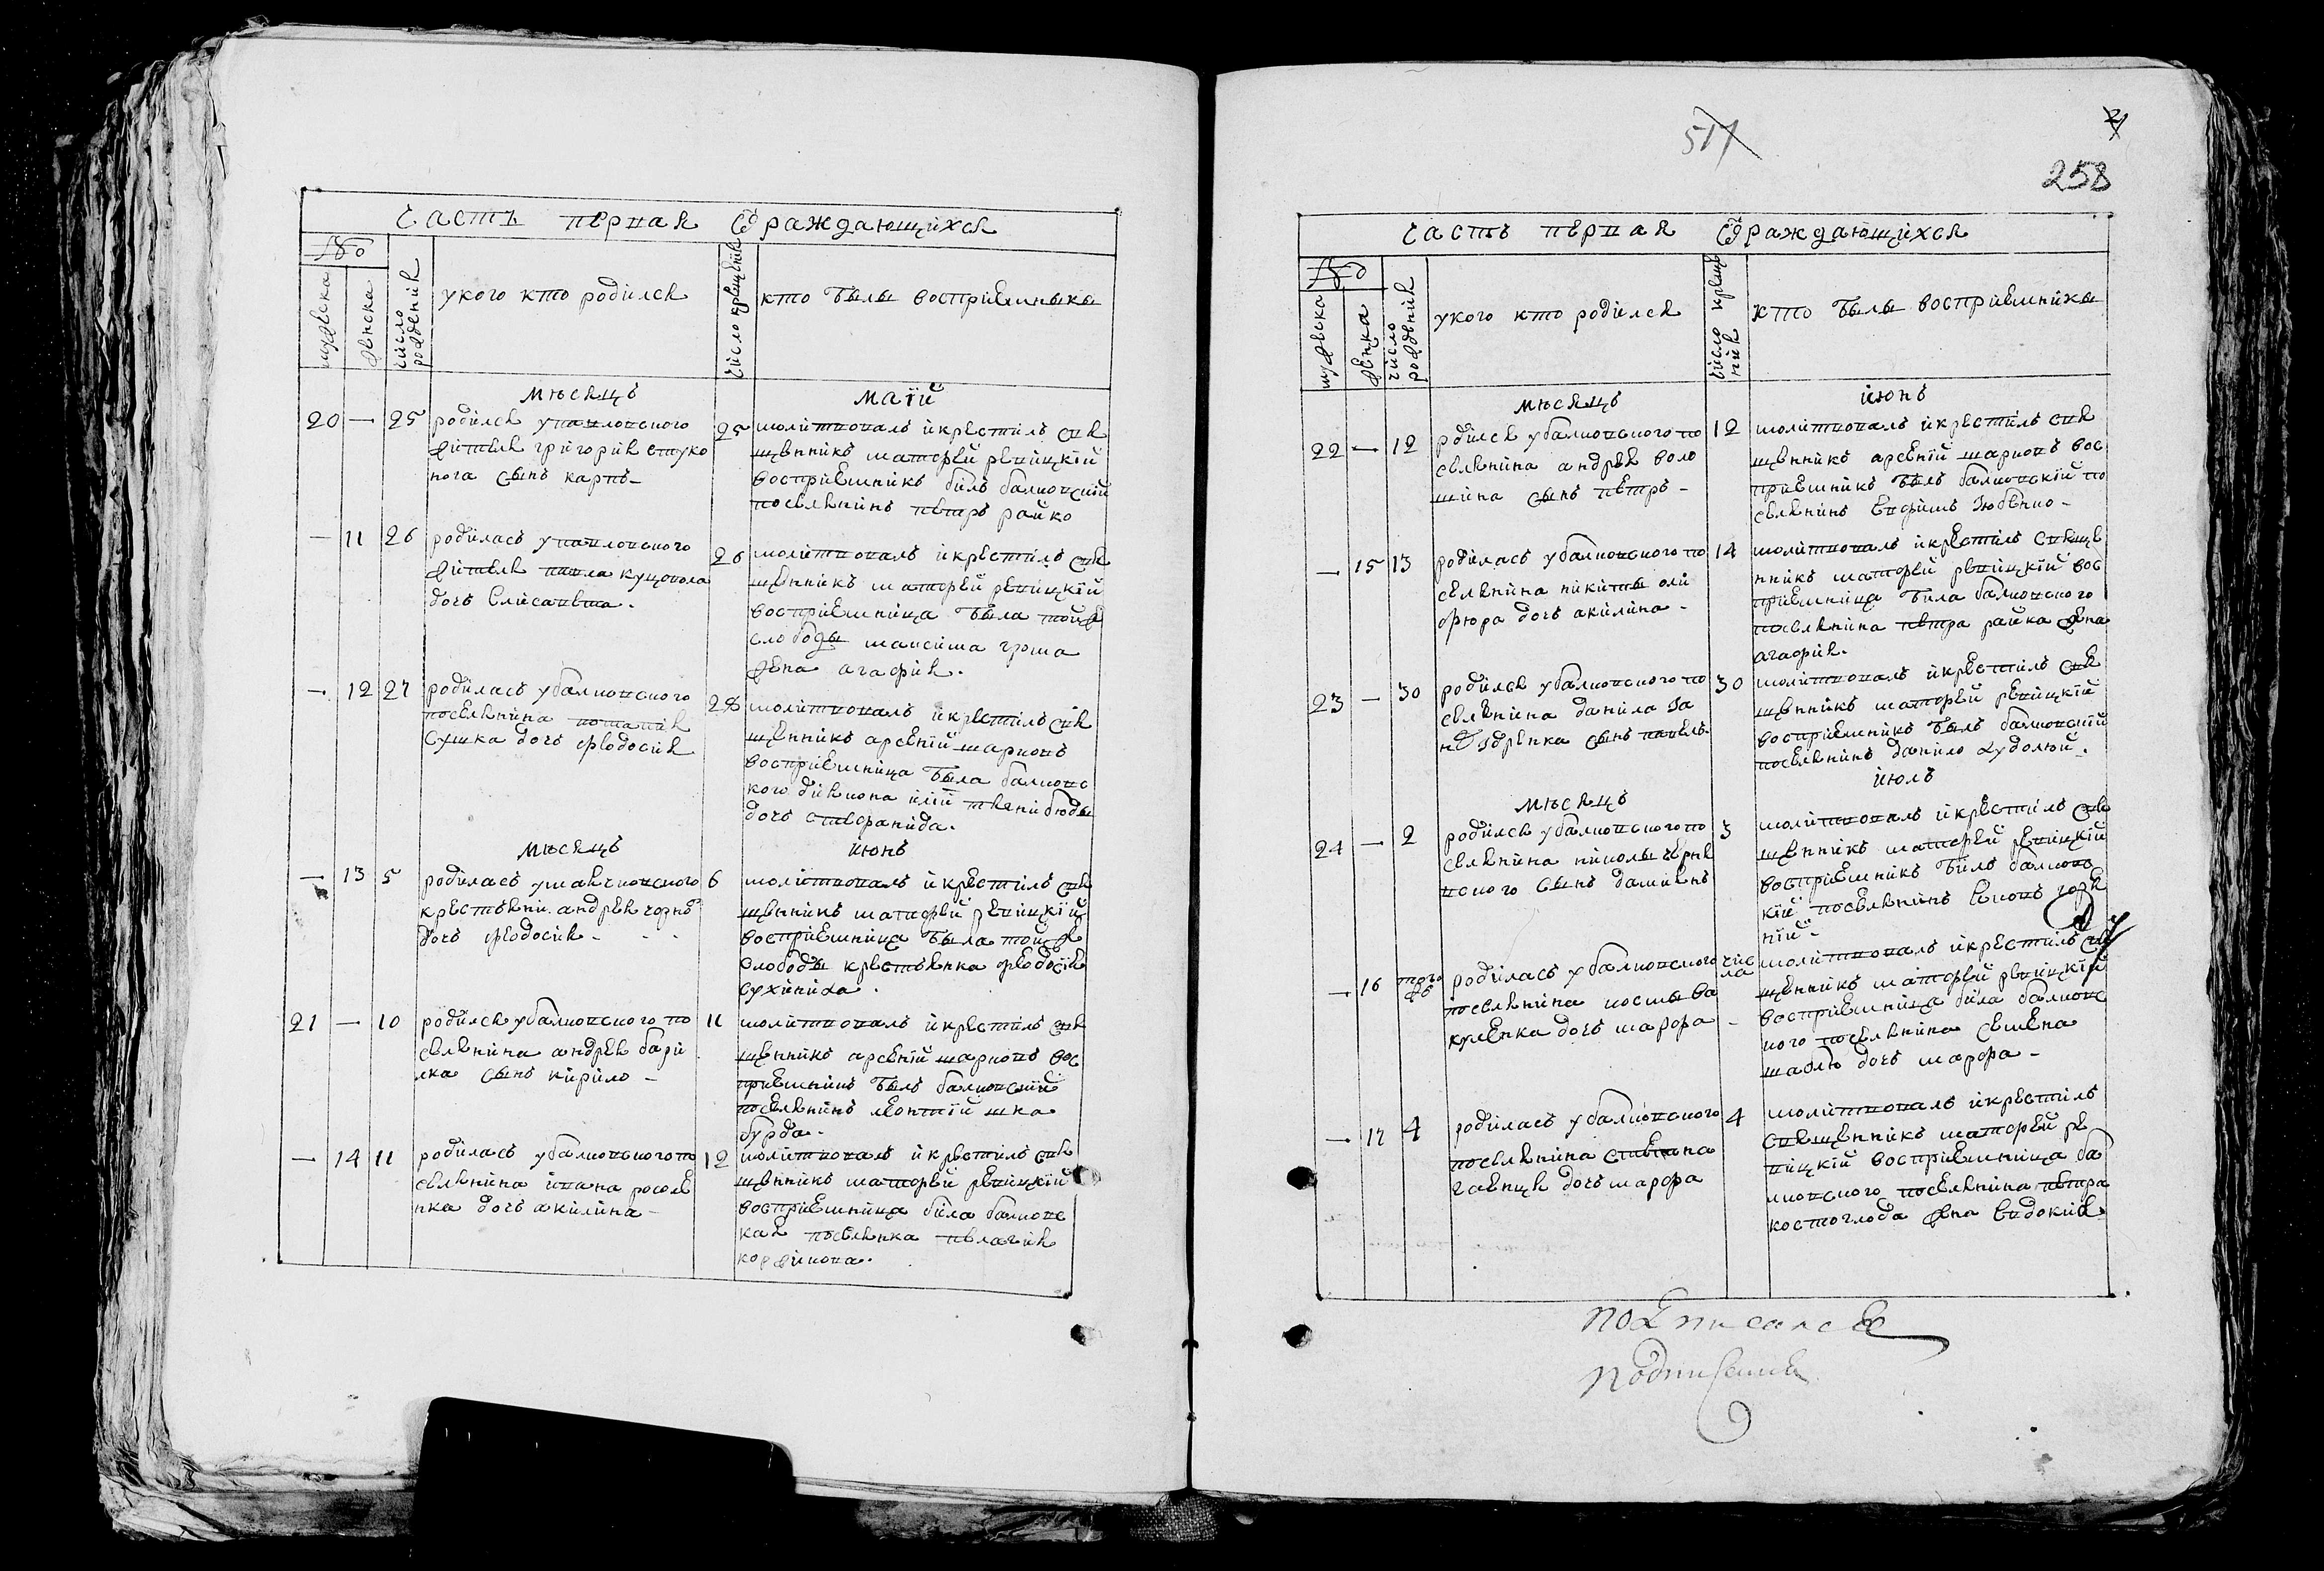 часть первая о раждающихся
No
мужеска
женска
число рожденія
укого кто родился
число крещенія
кто были восприемныки
мѣсяцъ маїй
20 — 25 родился упавловского
жителя григория
сынъ карпъ
25 молитвовалъ икрестилъ свя
щенникъ матфей ревицкїй
восприемникъ билъ балковскїй
поселянинъ петръ райко
— 11 26 родилась упавловского
жителя павла куцовола
дочь елисавета.
26 молитвовалъ икрестилъ свя
щенникъ матфей ревицкїй
восприемница была тойже
слободы максима грома
жена агафия.
— 12 27 родилась убалковского
поселянина потапия
сушка дочь феодосия
28 молитвовалъ икрестилъ свя
щенникъ арсений марковъ
восприемница была балковс
кого диякона илїи
дочь стефанида.
мѣсяцъ июнь
— 13 5 родилась умаячковского
крестьяни. андрея чорно
дочь феодосия
6 молитвовалъ икрестилъ свя
щенникъ матфей ревицкїй
восприемница была тойже
слободы крестьянка феодосїя
сухиниха.
21 — 10 родился убалковского по
селянина андрея бари
лка сынъ кирило
11 молитвовалъ икрестилъ свя
щенникъ арсенїй марковъ вос
приемникъ былъ балковскїй
поселянинъ леонтїй шка
бурда.
— 14 11 родилась убалковского по
селянина ивана росоле
нка дочь акилина
12 молитвовалъ икрестилъ свя
щенникъ матфей ревицкїй
восприемница била балковс
кая поселянка пелагия
коржикова.
517
258
часть первая о раждающихся
No
мужеска
женска
число рожденїя
укого кто родился
число крещенїя
кто былы восприемники
мѣсяцъ июнь
22 — 12 рдился убалковского по
селянина андрея воло
шина сынъ петръ
12 молитвовалъ икрестилъ свя
щенникъ арсенїй марковъ вос
приемникъ былъ балковскїй по
селянинъ ефимъ зюбенко
— 15 13 родилась убалковского по
селянина никиты оли
фюра дочь акилина
14 молитвовалъ икрестилъ свяще
нникъ матфей ревицкїй вос
приемница била балковского
поселянина петра райка жена
агафия.
23 — 30 родился убалковского по
селянина данила за
сынъ павелъ
30 молитвовалъ икрестилъ свя
щенникъ матфей ревицкїй
восприемникъ былъ балковскїй
поселянинъ данило худолїй.
мѣсяцъ июль
24 — 2 родился убалковского по
селянина николы черня
вского сынъ дамиянъ
3 молитвовалъ икрестилъ свя
щенникъ матфей ревицкїй
восприемникъ билъ балковс
кїй поселянинъ
нїй
— 16 того ж родилась убалковского
поселянина космы ва
куленка дочь марфа
числа молитвовалъ икрестилъ свя
щенникъ матфей ревицкїй
восприемница била балковс
кого поселянина семена
дочь марфа
— 17 4 родилась убалковского
поселянина стивана
дочь марфа
4 молитвовалъ икрестилъ
священникъ матфей ре
вицкїй восприемница ба
лковского поселянина петра
костоглода жена евдокия.